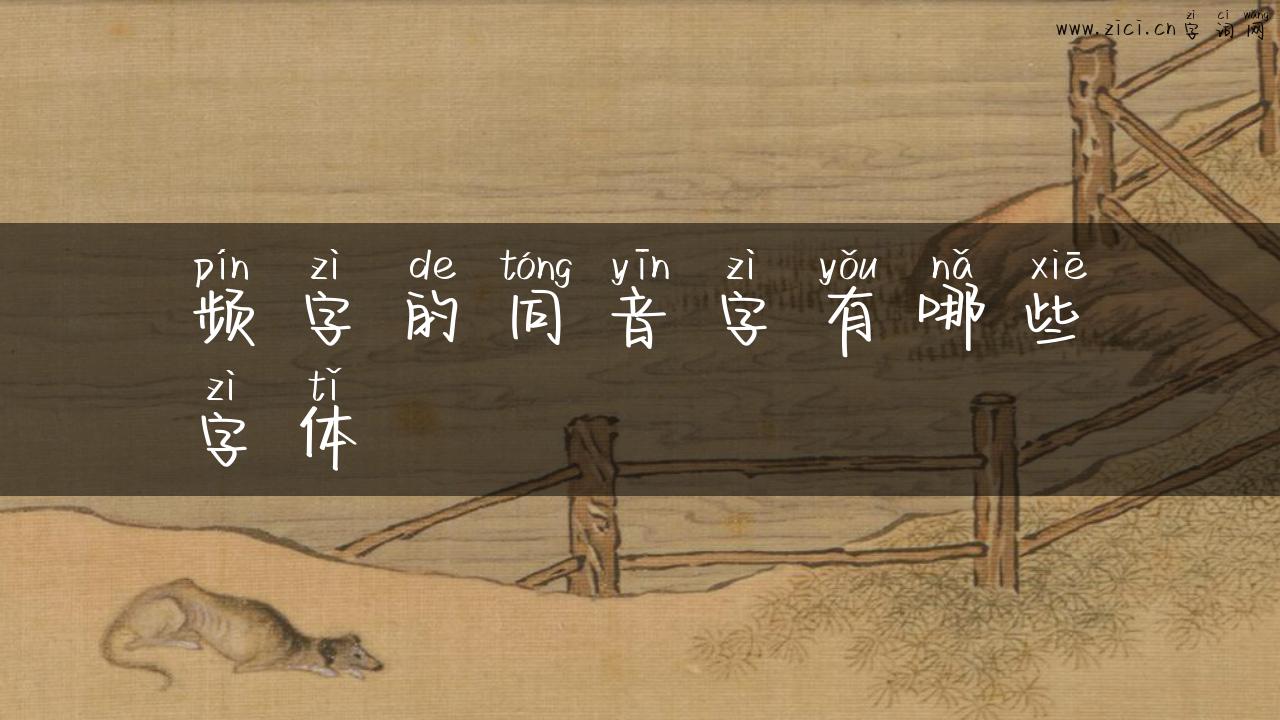 zì cì wǎng
www.zici.cn字词网
pín zì de tóng yīn zì yǒu nǎ xiē
频字的同音字有哪些
zì tǐ
字体